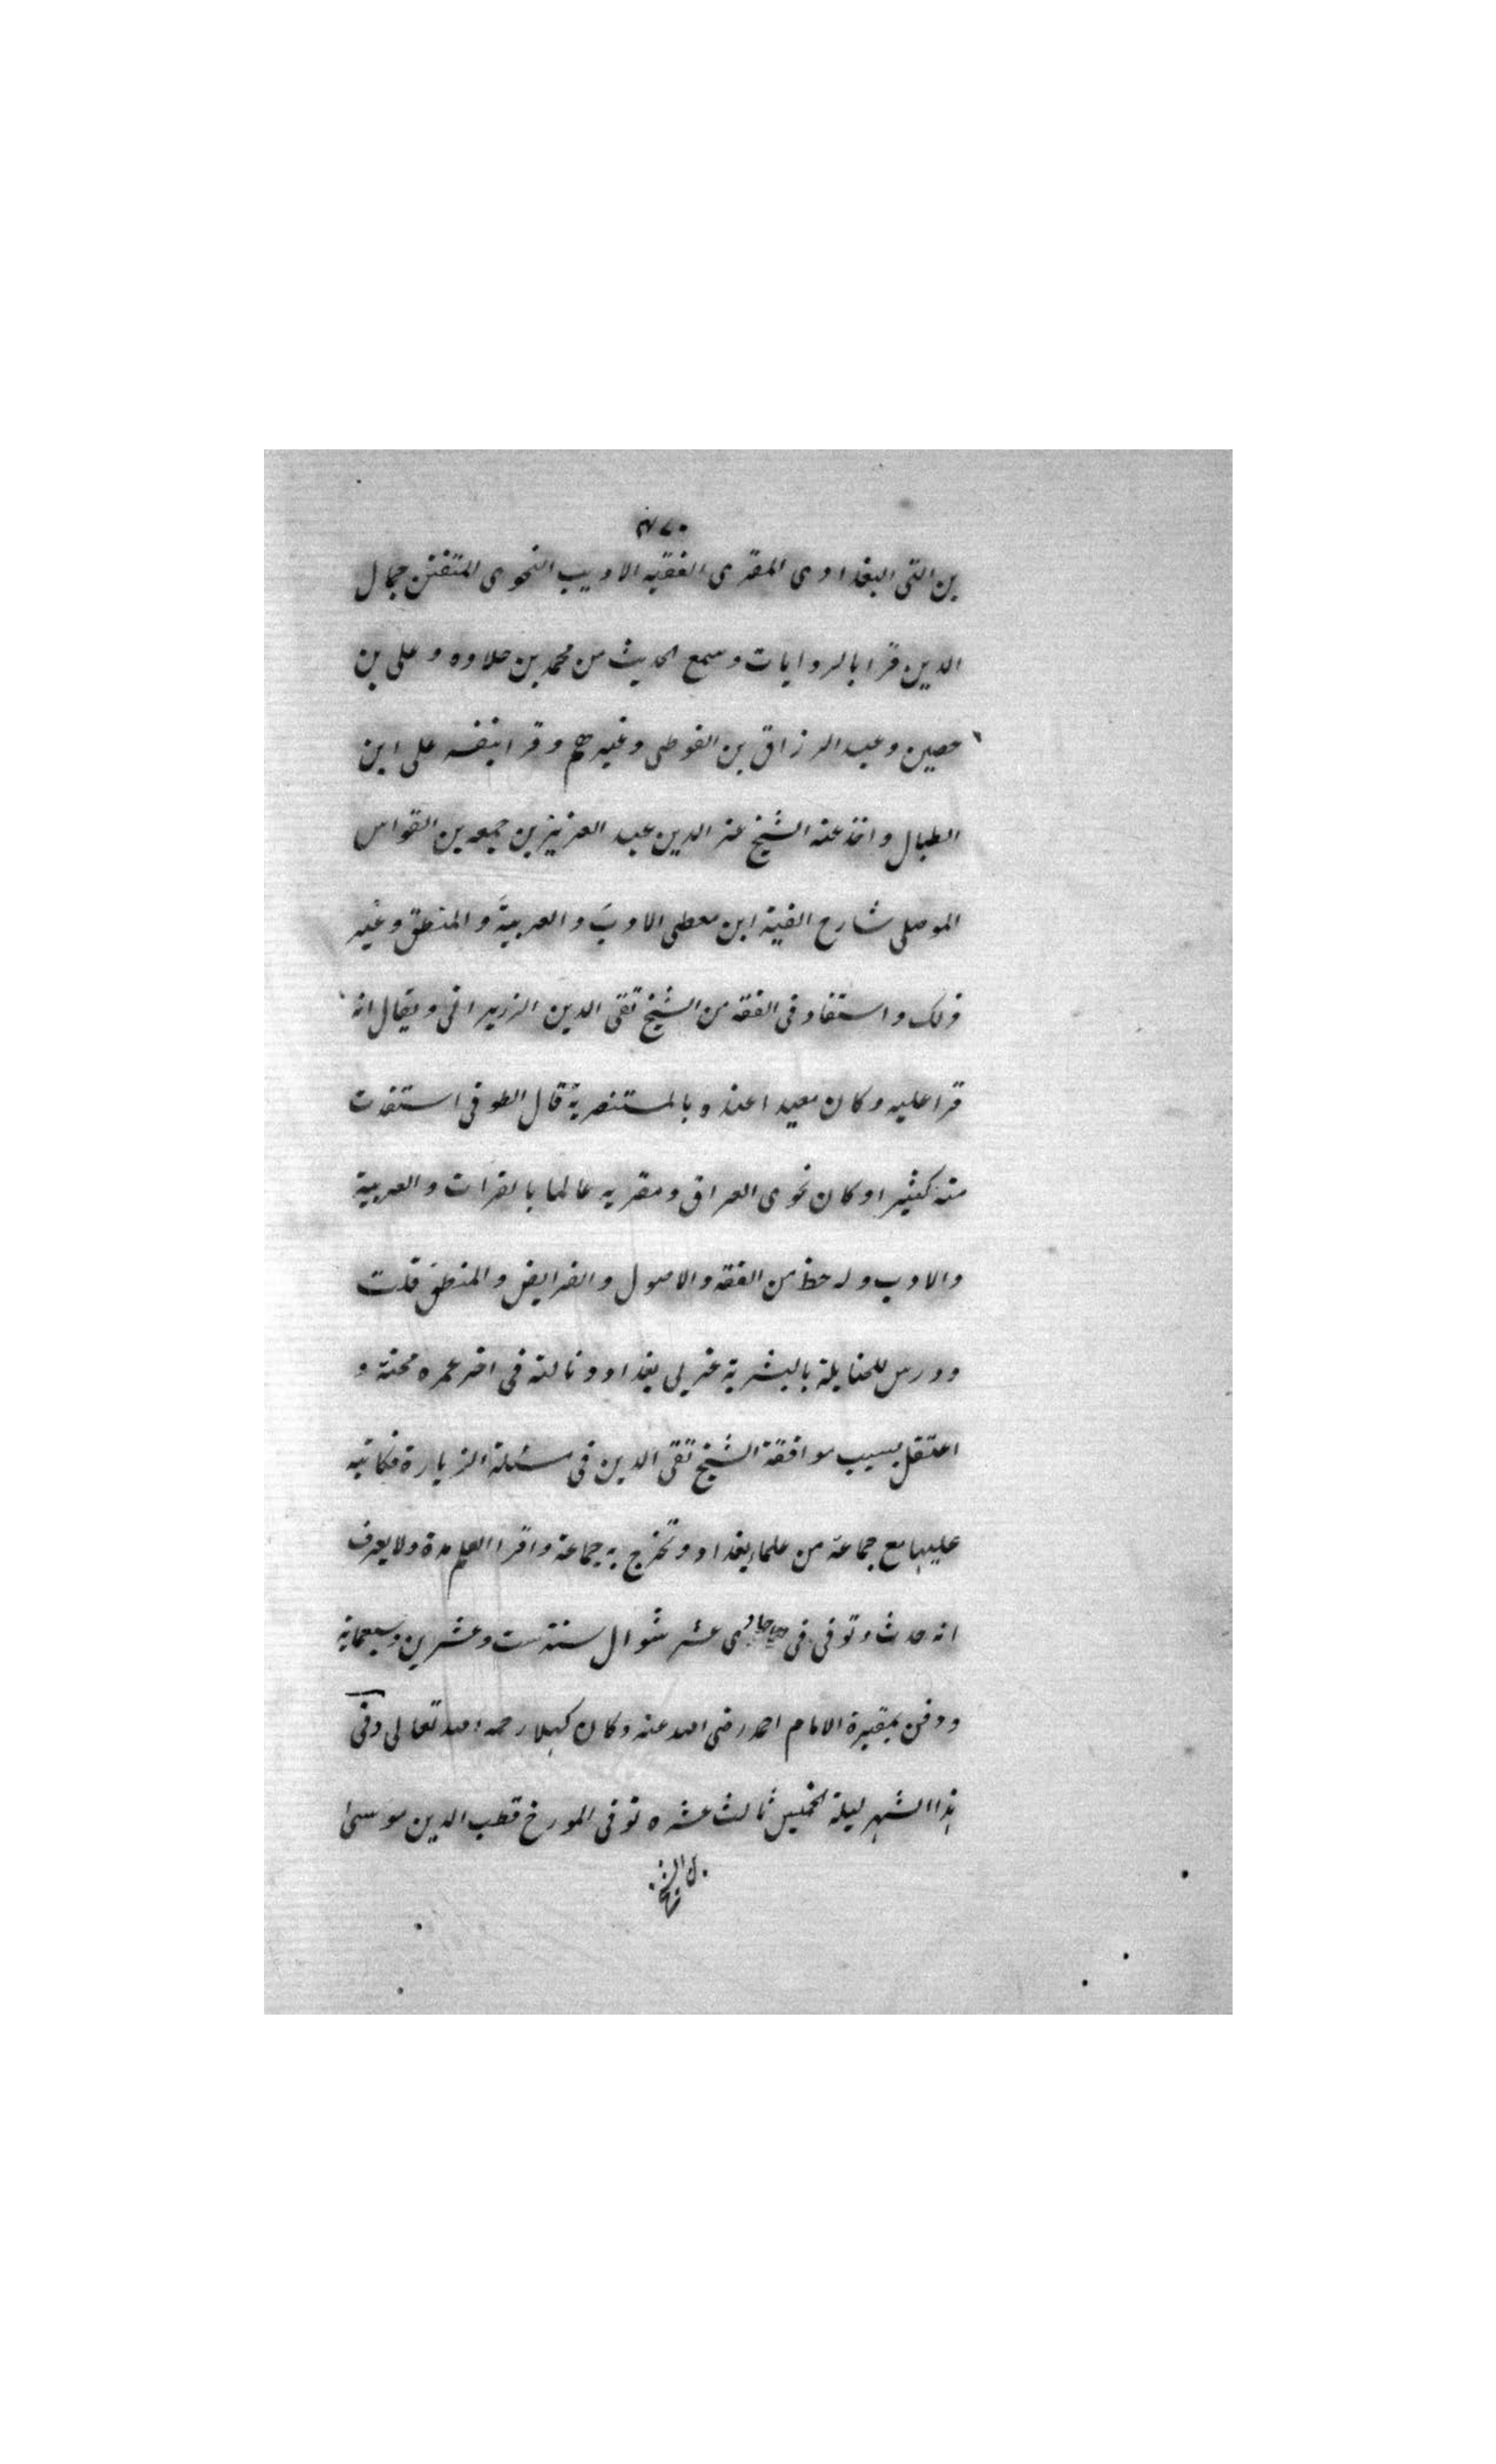 بن التى البغدادى المقرى الفقيه الاديب النحوى المتفنن جمال
الدين قرا بالروايات وسمع الحديث من محمد بن حلاوه وعلى بن
حصين وعبد الرزاق بن الفوطى وغيرهم وقرا بنفسه على ابن
الطبال واخذ عنه الشيخ عز الدين عبد العزيز بن جمعه بن القواس
الموصلى شارح الفية ابن معطى الادب والعربية والمنطق وغير
ذلك واستفاد فى الفقه من الشيخ تقى الدين الزريرانى ويقال انه
قرا عليه وكان معيدا عنده بالمستنصرية قال الطوفى استفدت
منه كثيرا وكان نحوى العراق ومقريه عالما بالقرات والعربية
والادب وله حظ من الفقه والاصول والفرايض والمنطق قلت
ودرس للحنابلة بالبشرية غربى بغداد ونالته فى اخر عمره محنة و
اعتقل بسبب موافقة الشيخ تقى الدين فى مسئلة الزيارة فكاتبه
عليها مع جماعة من علماء بغداد وتخرج به جماعة واقرا العلم مدة ولا يعرف
انه حدث وتوفى فى حادى عشر شوال سنة ست وعشرين وسبعماية
ودفن بمقبرة الامام احمد رضى الله عنه وكان كهلا رحمه الله تعالى وفى
هذا الشهر ليلة الخميس ثالث عشره توفى المورخ قطب الدين موسى
بن الشيخ